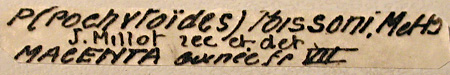 P(Pochytoïdes) Poissoni. Mello
J. Millot rec et. det
MACENTA Guinée fr VIII